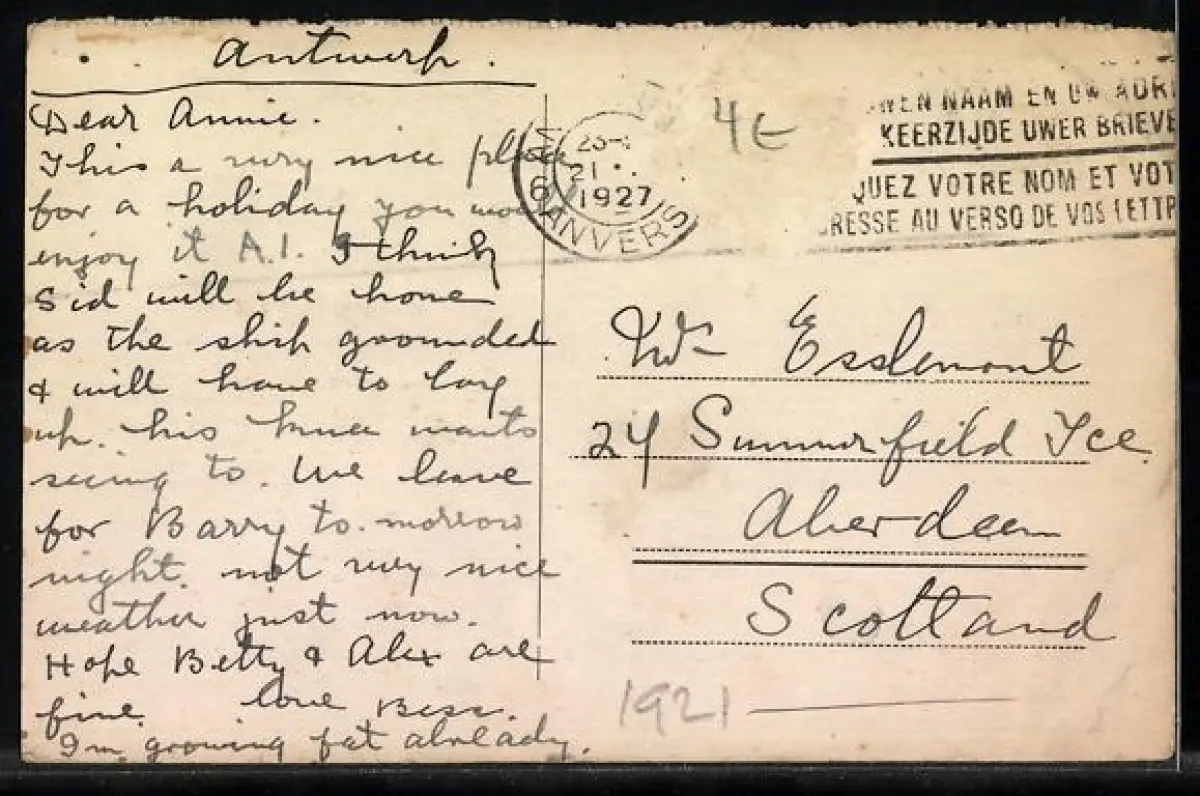 Antwerp.
Dear Annie.
This a very nice place
for a holiday you would
enjoy it A.1. I think
Sid will be home
as the ship grounded
& will have to lay
up. his knee wants
seeing to. We leave
for Barry to-morrow
night. not very nice
weather just now.
Hope Betty & Alex are
fine. love Bess.
I'm growing fat already.
6
21
1927
ANVERS
4E
NAAM EN UW ADR
KEERZIJDE UWER BRIEVE
QUEZ VOTRE NOM ET VOT
RESSE AU VERSO DE VOS LETTR
Esslemont
24 Summerfield Tce
Aberdeen
Scotland
1921